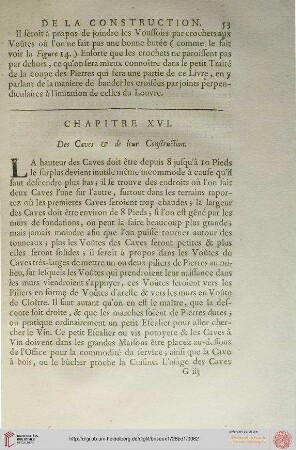 DE LA CONSTRUCTION. 53
Il seroit à propos de joindre les Voussoirs par crochets aux
Voûtes où l'on ne fait pas une bonne butée ( comme le fait
voir la Figure 14. ) Ensorte que les crochets ne paroissent pas
par dehors, ce qu'on sera mieux connoître dans le petit Traité
de la coupe des Pierres qui sera une partie de ce Livre, en y
parlant de la maniere de bander les croisées par joints perpen-
diculaires à l'imitation de celles du Louvre.
CHAPITRE XVI.
Des Caves & de leur Construction.
LA hauteur des Caves doit être depuis 8 jusqu'à 10 Pieds
le surplus devient inutile même incommode à cause qu'il
faut descendre plus bas; il se trouve des endroits où l'on fait
deux Caves l'une sur l'autre, surtout dans les terrains
où les premieres Caves seroient trop chaudes; la largeur
des Caves doit être environ de 8 Pieds; si l'on est gêné par les
murs de fondations, on peut la faire beaucoup plus grandes
mais jamais moindre afin que l'on puisse tourner autour des
tonneaux; plus les Voûtes des Caves seront petites & plus
elles seront solides; il seroit à propos dans les Voûtes de
Caves très-larges de mettre un ou deux piliers de Pierres au mi-
lieu, sur lesquels les Voûtes qui prendroient leur naissance dans
les murs viendroient s'appuyer, ces Voûtes seroient vers les
Piliers en forme de Voûtes d'arête & vers les murs en Voûte
de Cloître. Il faut autant qu'on en est le maître, que la des-
cente soit droite, & que les marches soient de Pierres dures;
on pratique ordinairement un petit Escalier pour aller cher-
cher le Vin. Ce petit Escalier ou vis potoyere & les Caves à
Vin doivent dans les grandes Maisons être placez au-dessous
de l'Office pour la commodité du service; ainsi que la Cave
à bois, ou le bûcher proche la Cuisine. L'usage des Caves
G iij